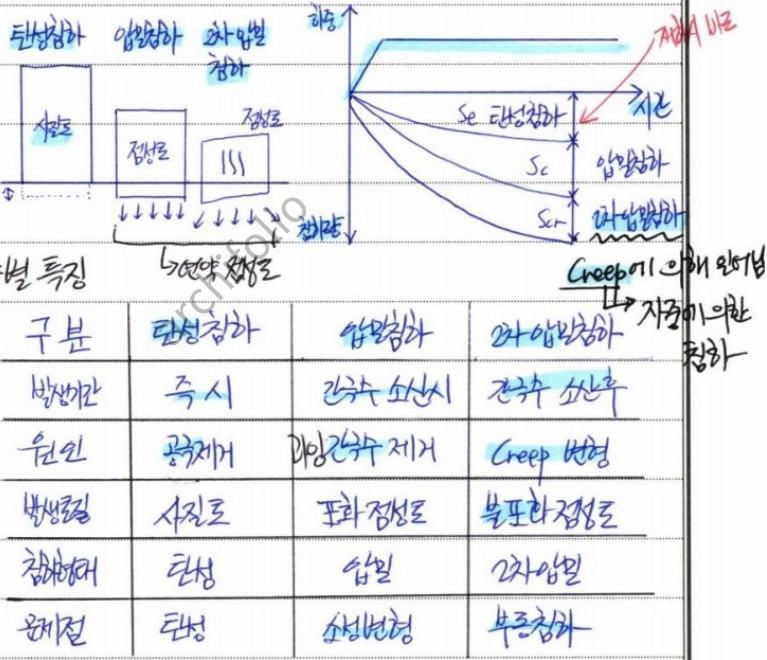 탄성침하 압밀침하 2차압밀
침하
사질토
점성토
점성토
연약 점성토
하중
시간
침하량
Se 탄성침하
Sc 압밀침하
Scr 2차압밀침하
Creep에 의해 일어남
자중에 의한
침하
별 특징
구분 탄성침하 압밀침하 2차압밀침하
발생기간 즉시 간극수 소산시 간극수 소산후
원인 공극제거 과잉간극수 제거 Creep 변형
발생토질 사질토 포화점성토 불포화점성토
침하형태 탄성 압밀 2차압밀
문제점 탄성 소성변형 부등침하
archifolio